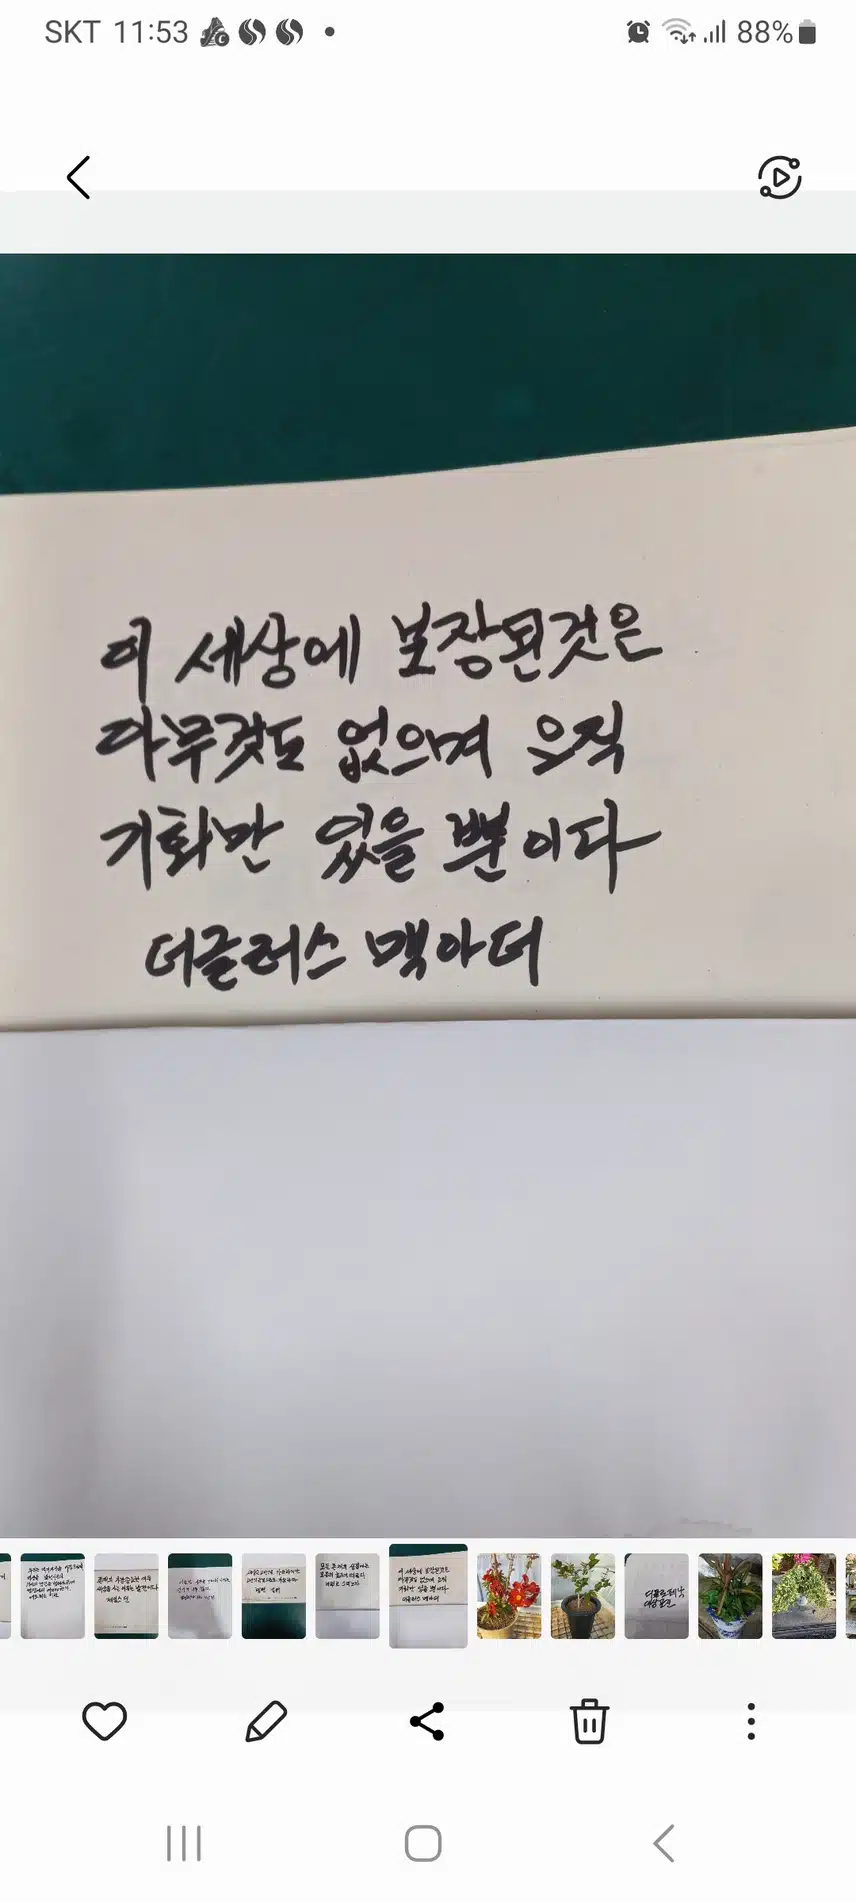 SKT 11:53 88%
이 세상에 보장된것은
아무것도 없으며 오직
기회만 있을 뿐이다
더글러스 맥아더